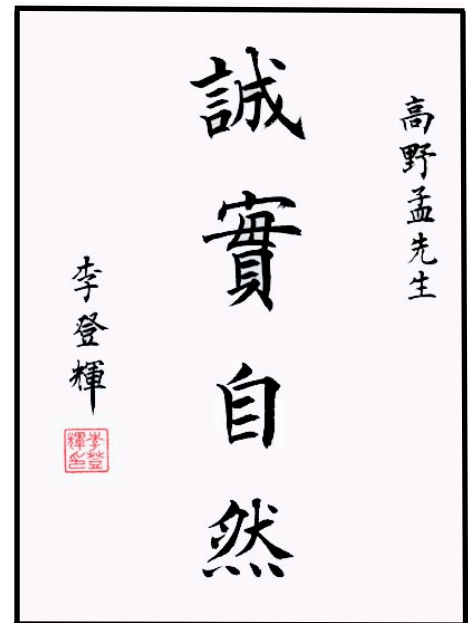 高野孟先生
誠實自然
李登輝
李登輝印